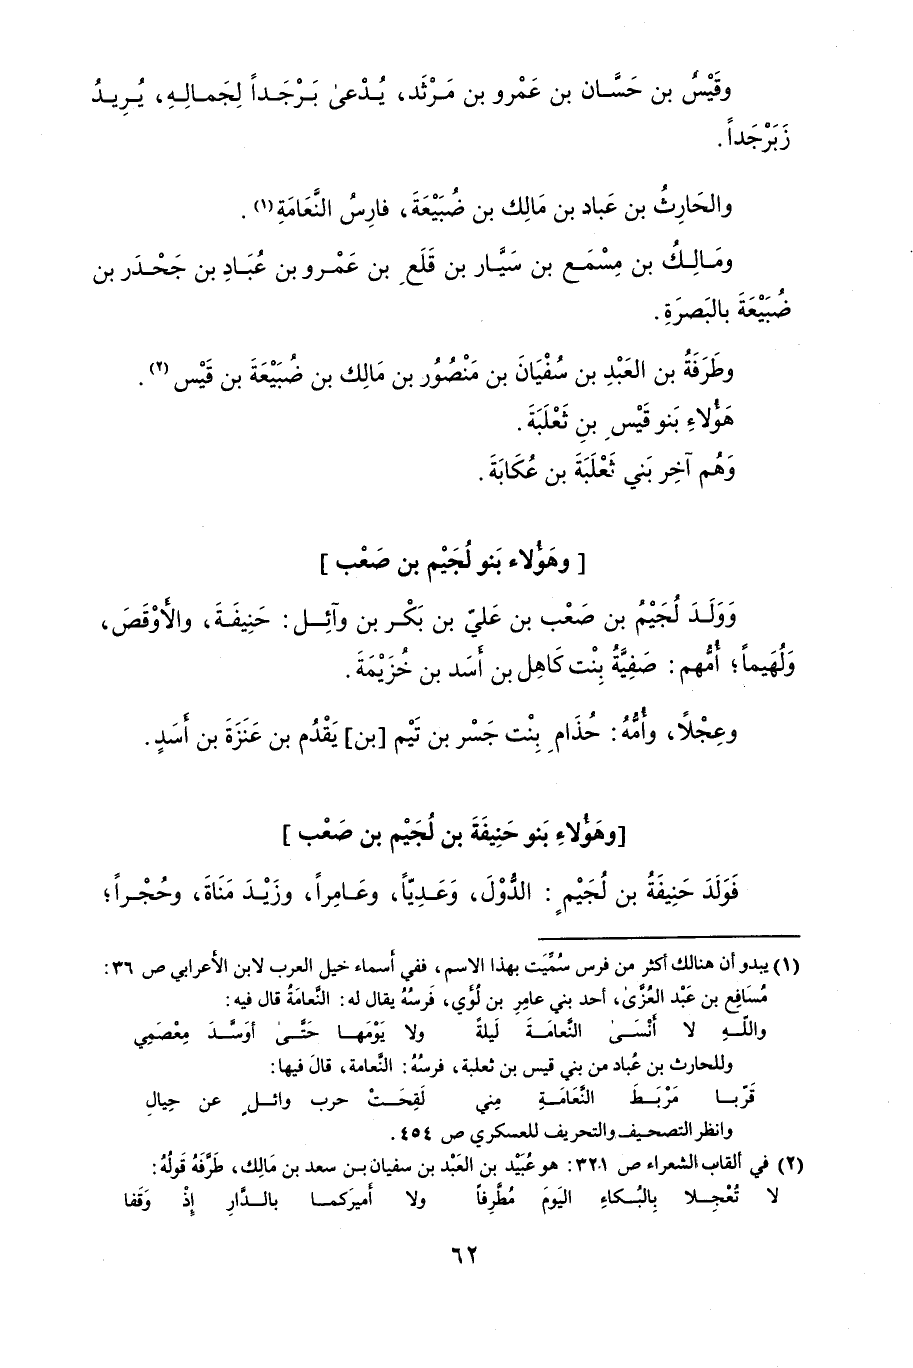 وقَيْسُ بن حَسَّان بن عَمْرو بن مَرْثَد، يُدْعىٰ بَرْجَداً لِجَمالِهِ، يُرِيدُ
زَبَرْجَداً.
والحَارِثُ بن عَباد بن مَالِك بن ضُبَيْعَةَ، فارِسُ النَّعَامَةِ(١).
ومَالِكُ بن مِسْمَع بن سَيَّار بن قَلَعٍ بن عَمْرو بن عُبَادِ بن جَحْدَر بن
ضُبَيْعَةَ بالبَصرَةِ.
وطَرَفَةُ بن العَبْدِ بن سُفْيَانَ بن مَنْصُوُر بن مَالِك بن ضُبَيْعَةَ بن قَيْس (٢).
هَؤُلاءِ بَنو قَيْسٍ بنِ ثَعْلَبَةَ.
وَهُم آخِر بَني ثَعْلَبَةَ بن عُكَابَةَ.
[ وهَؤُلاء بَنو لُجَيْم بن صَعْب ]
وَوَلَدَ لُجَيْمُ بن صَعْب بن عَليّ بن بَكْر بن وآئِل: حَنِيفَةَ، والأَوْقَصَ،
وَلُهَيماً؛ أمُّهم: صَفِيَّةُ بِنْت كَاهِل بن أَسَد بن خُزَيْمَةَ.
وعِجْلاً، وأمُّهُ: حُذَامِ بِنْت جَسْر بن تَيْم [بن] يَقْدُم بن عَنَزَةَ بن أَسَدٍ.
[وهَؤُلاءِ بَنو حَنِيفَةَ بن لُجَيْم بن صَعْب ]
فَوَلَدَ حَنِيفَةُ بن لُجَيْمٍ: الدُّوْلَ، وَعَدِيّاً، وعَامِراً، وزَيْدَ مَنَاةَ، وحُجْراً؛
(١) يبدو أن هنالك أكثر من فرس سُمِّيَت بهذا الاسم، ففي أسماء خيل العرب لابن الأعرابي ص ٣٦:
مُسَافِع بن عَبْد العُزَّىٰ، أحد بني عامِرِ بن لُؤَي، فَرسُهُ يقال له: النَّعامَةُ قال فيه:
واللّهِ لا أَنْسَىٰ النَّعامَةَ لَيلةً ولا يَوْمَها حَتَّىٰ أوَسَّدَ مِعْصَمِي
وللحارث بن عُباد من بني قيس بن ثعلبة، فرسُهُ: النَّعامة، قالَ فيها:
قَرِّبا مَرْبَطَ النَّعَامَةِ مِني لَقِحَتْ حرب وائلٍ عن حِيالِ
وانظر التصحيف والتحريف للعسكري ص ٤٥٤.
(٢) في ألقاب الشعراء ص ٣٢٠١: هو عُبَيْد بن العَبْد بن سفيان بن سعد بن مَالِك، طَرَّفَهُ قَولُهُ:
لا تُعْجِلا بِالبُكاءِ اليَومَ مُطَّرِفاً ولا أميرَكما بالدَّارِ إذْ وَقَفا
٦٢